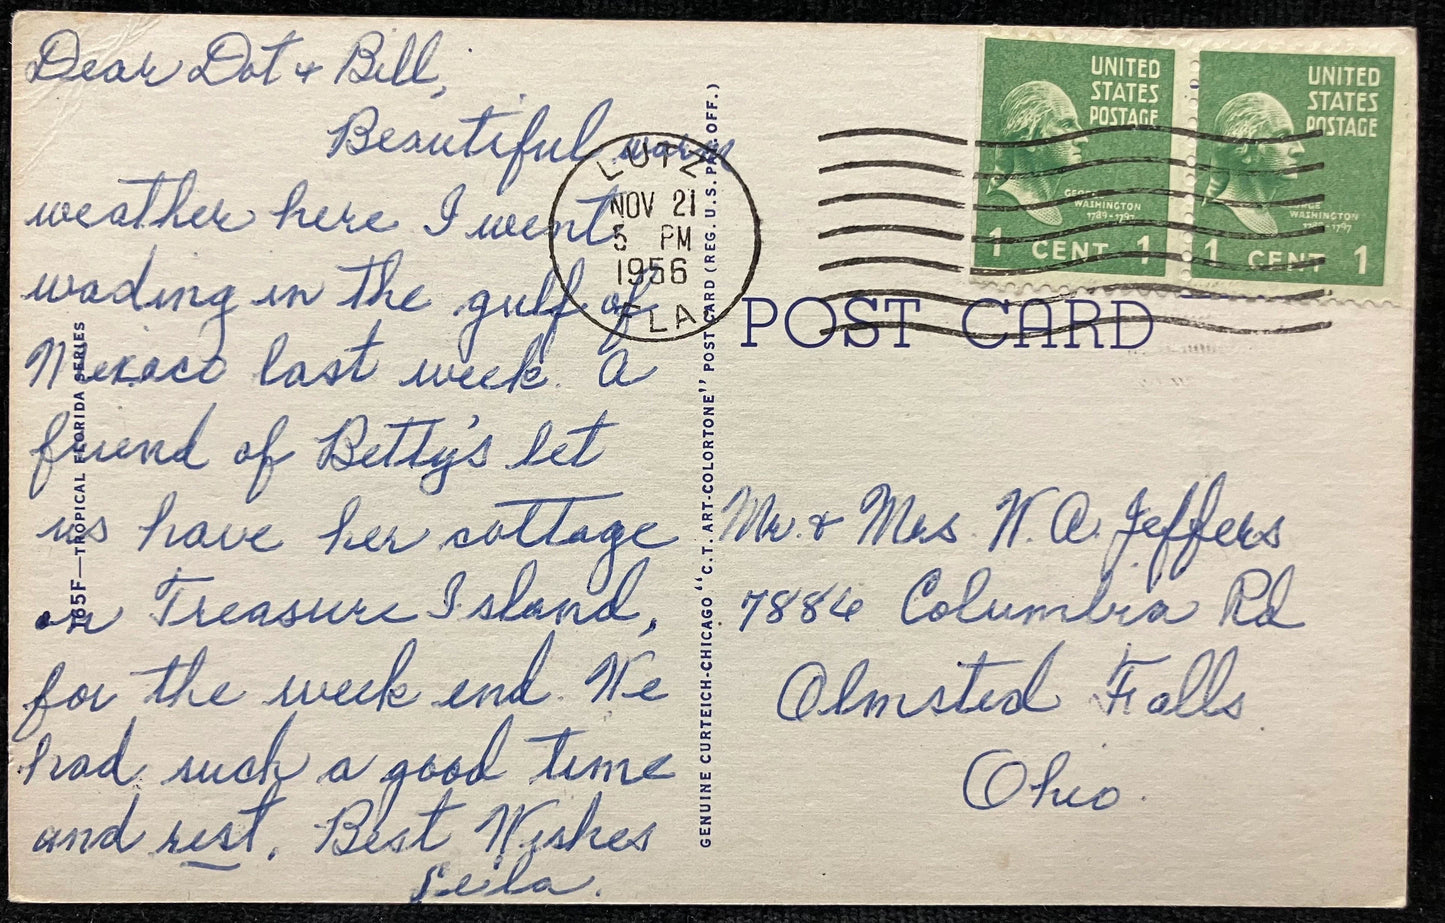 Dear Dot + Bill,
Beautiful warm
weather here I went
wading in the gulf of
Mexico last week. A
friend of Betty's let
us have her cottage
on Treasure Island,
for the week end. We
had such a good time
and rest. Best Wishes
Leila.
165F—TROPICAL FLORIDA SERIES
GENUINE CURTEICH-CHICAGO "C.T. ART-COLORTONE" POST CARD (REG. U.S. PAT. OFF.)
LUTZ
NOV 21
5 PM
1956
FLA
UNITED
STATES
POSTAGE
GEORGE
WASHINGTON
1789-1797
1 CENT 1
UNITED
STATES
POSTAGE
GEORGE
WASHINGTON
1789-1797
1 CENT 1
POST CARD
Mr. + Mrs. W. A. Jeffers
7884 Columbia Rd
Olmsted Falls
Ohio